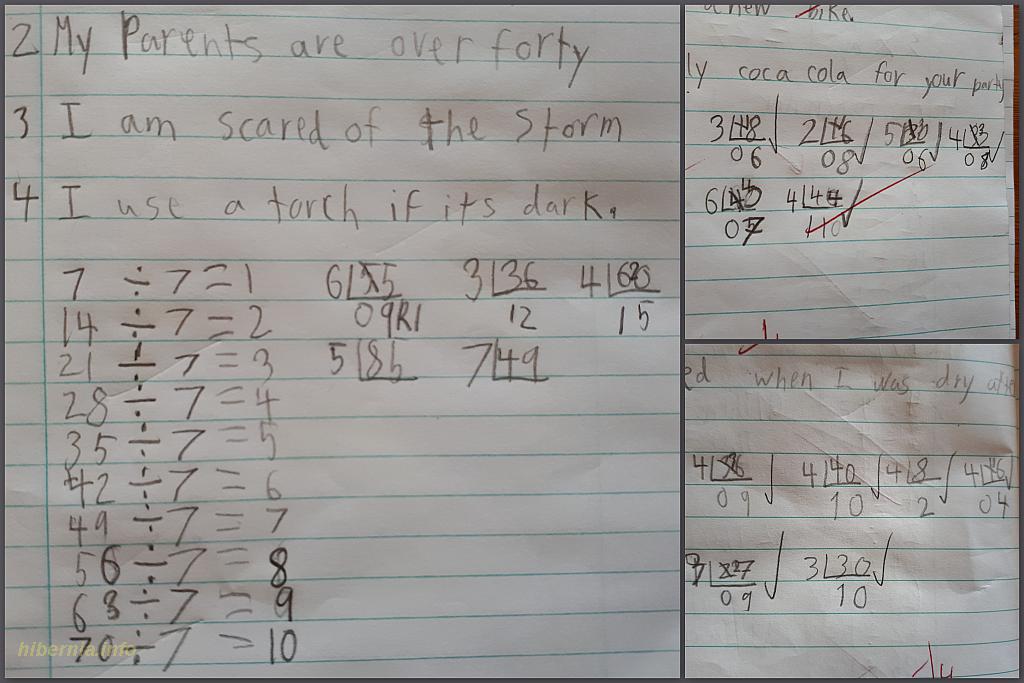 2 My Parents are over forty
3 I am scared of the storm
4 I use a torch if its dark.
7 ÷ 7 = 1
14 ÷ 7 = 2
21 ÷ 7 = 3
28 ÷ 7 = 4
35 ÷ 7 = 5
42 ÷ 7 = 6
49 ÷ 7 = 7
56 ÷ 7 = 8
63 ÷ 7 = 9
70 ÷ 7 = 10
6 55 3 36 4 60
09R1 12 15
5 85 7 49
hibernia.info
a new bike.
ly coca cola for your party
3 18 2 16 5 30 4
06 08 06 08
6 4 44
07
ed when I was dry
4 36 4 40 4 8 4 16
09 10 2 04
3 27 3 30
09 10